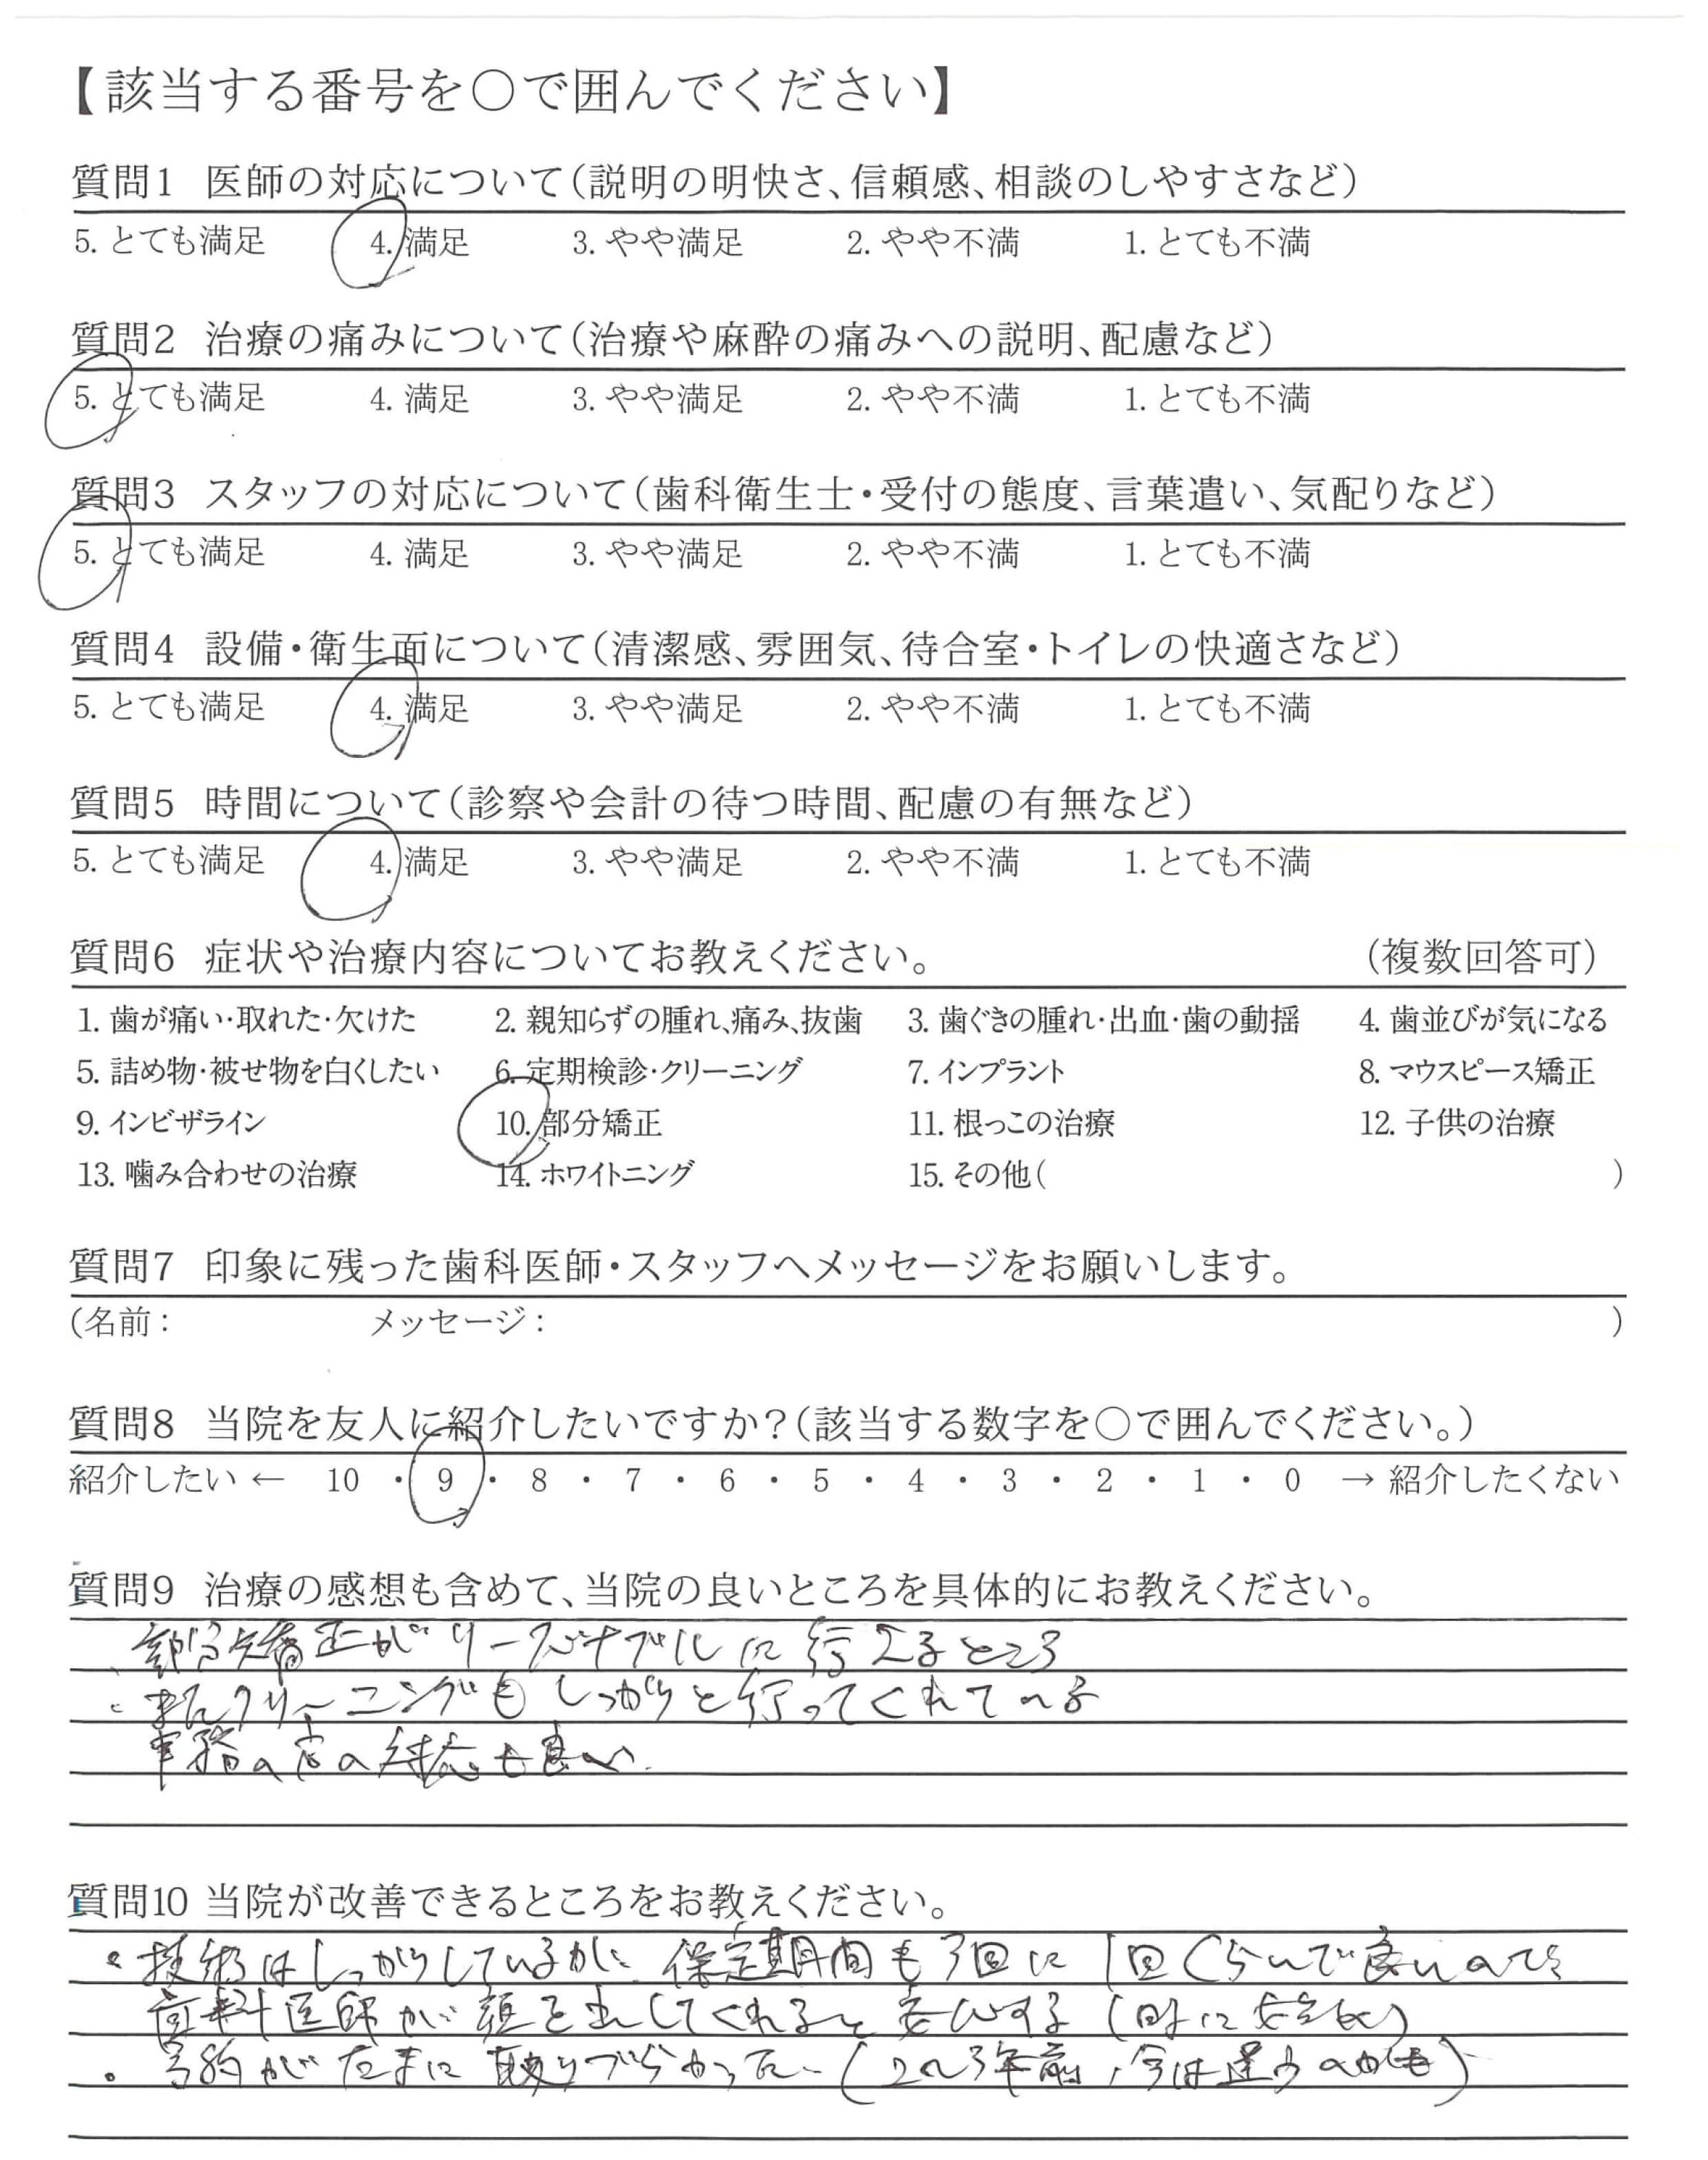 【該当する番号を○で囲んでください】
質問1 医師の対応について（説明の明快さ、信頼感、相談のしやすさなど）
5. とても満足 4. 満足 3. やや満足 2. やや不満 1. とても不満
質問2 治療の痛みについて（治療や麻酔の痛みへの説明、配慮など）
5. とても満足 4. 満足 3. やや満足 2. やや不満 1. とても不満
質問3 スタッフの対応について（歯科衛生士・受付の態度、言葉遣い、気配りなど）
5. とても満足 4. 満足 3. やや満足 2. やや不満 1. とても不満
質問4 設備・衛生面について（清潔感、雰囲気、待合室・トイレの快適さなど）
5. とても満足 4. 満足 3. やや満足 2. やや不満 1. とても不満
質問5 時間について（診察や会計の待つ時間、配慮の有無など）
5. とても満足 4. 満足 3. やや満足 2. やや不満 1. とても不満
質問6 症状や治療内容についてお教えください。 （複数回答可）
1. 歯が痛い・取れた・欠けた 2. 親知らずの腫れ、痛み、抜歯 3. 歯ぐきの腫れ・出血・歯の動揺 4. 歯並びが気になる
5. 詰め物・被せ物を白くしたい 6. 定期検診・クリーニング 7. インプラント 8. マウスピース矯正
9. インビザライン 10. 部分矯正 11. 根っこの治療 12. 子供の治療
13. 噛み合わせの治療 14. ホワイトニング 15. その他（ ）
質問7 印象に残った歯科医師・スタッフへメッセージをお願いします。
（名前： メッセージ： ）
質問8 当院を友人に紹介したいですか？（該当する数字を○で囲んでください。）
紹介したい ← 10 ・ 9 ・ 8 ・ 7 ・ 6 ・ 5 ・ 4 ・ 3 ・ 2 ・ 1 ・ 0 → 紹介したくない
質問9 治療の感想も含めて、当院の良いところを具体的にお教えください。
部分矯正がリーズナブルに行えるところ
またクリーニングもしっかりと行ってくれている
事務の方の対応も良い
質問10 当院が改善できるところをお教えください。
・技術はしっかりしているが、保定期間も3回に1回くらいで良いので
歯科医師が顔を出してくれると安心する
・予約がたまに取りづらかった（2〜3年前，今は違うのかも）